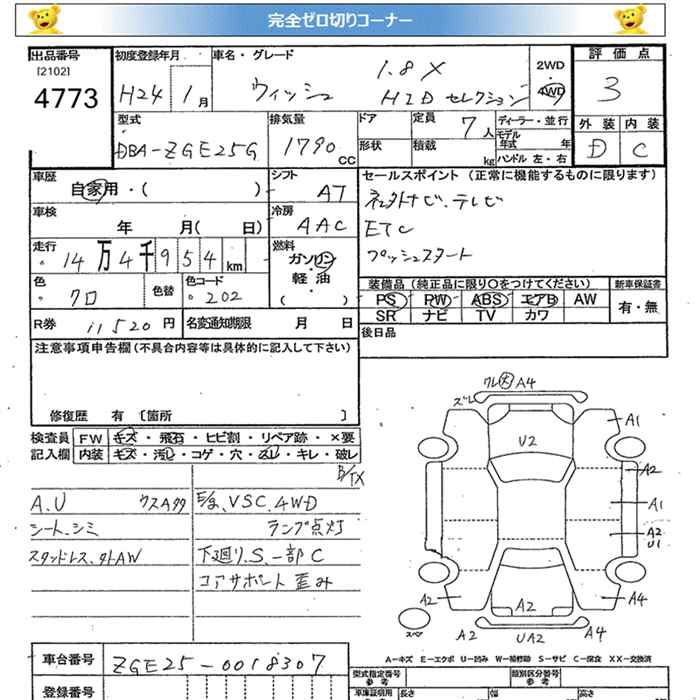 完全ゼロ切りコーナー
出品番号 [2102] 4773
初度登録年月 H24 1月
車名・グレード ウィッシュ 1.8X HIDセレクション
2WD 4WD
評価点 3
外装 内装
D C
型式 DBA-ZGE25G
排気量 1790 CC
ドア 定員 7人
形状 積載 kg
ディーラー・並行
モデル年式 年
ハンドル 左・右
車歴 自家用・( )
シフト AT
セールスポイント (正常に機能するものに限ります)
ETC
プッシュスタート
車検 年 月( 日)
冷房 AAC
走行 14万4千954km
燃料 ガソリン・軽油 ( )
色 クロ 色替
色コード 202
装備品 (純正品に限り○をつけてください)
新車保証書
PS PW ABS エアB AW
SR ナビ TV カワ
有・無
R券 11520円
名変通知期限 月 日
後日品
注意事項申告欄(不具合内容等は具体的に記入して下さい)
修復歴 有 〔箇所 〕
検査員 FW キズ・飛石・ヒビ割・リペア跡・×要
記入欄 内装 キズ・汚レ・コゲ・穴・スレ・キレ・破レ
A.U
シート.シミ
スタッドレス.外AW
VSC.4WD
ランプ点灯
下廻り.S.一部C
コアサポート歪み
ズレ A4
U2
A1
A2
A1
A2
U1
A2
A2
A4
スペア
A2 UA2 A4
A－キズ E－エクボ U－凹み W－補修跡 S－サビ C－腐食 XX－交換済
車台番号 ZGE25-0018307
登録番号
型式指定番号 参考
類別区分番号 参考
車庫証明用 参考 長さ 幅 高さ